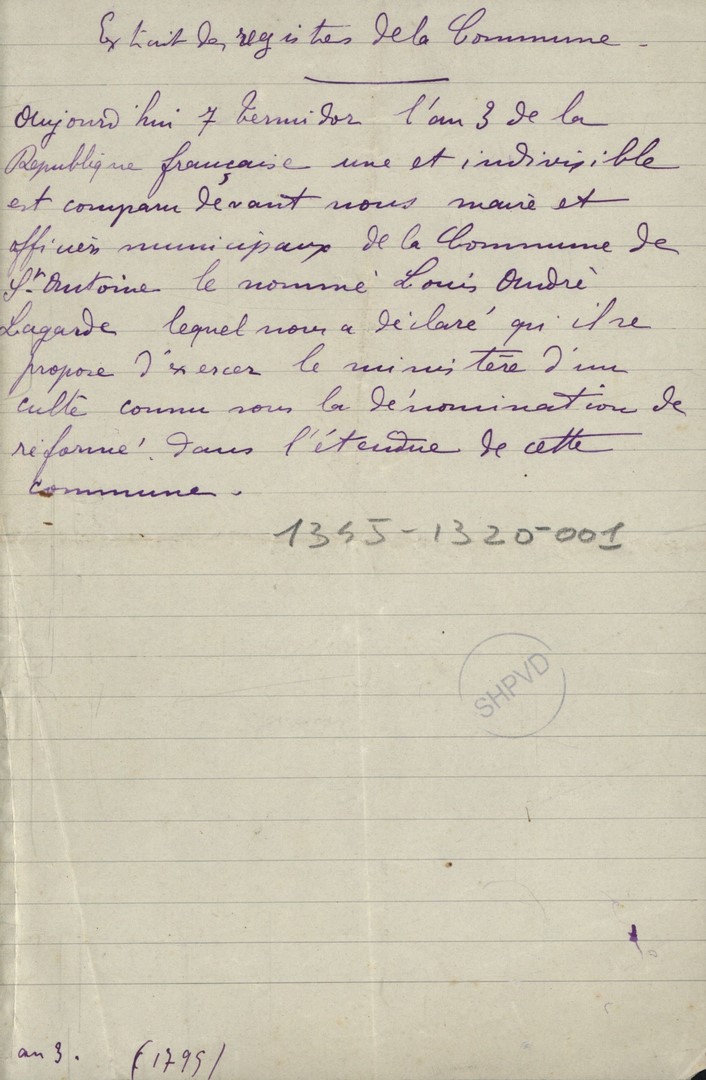 Extrait des registres de la Commune.
Aujourd'hui 7 termidor l'an 3 de la
Republique française une et indivisible
est comparu dévant nous maire et
officiers municipaux de la Commune de
St Antoine le nommé Louis Andrè
Lagarde lequel nous a déclaré qu'il se
propose d'exercer le ministère d'un
culte connu sous la dénomination de
réformé dans l'étendue de cette
commune.
1345-1320-001
SHPVD
an 3. (1795)